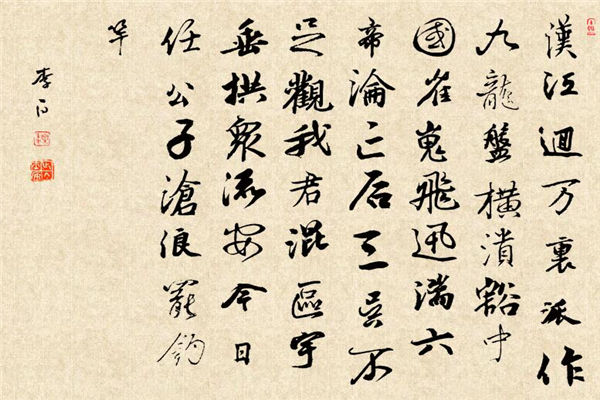 漢江迴万裏派作
九龍盤橫潰豁中
國崔嵬飛迅湍六
帝淪亡后三吳不
足觀我君混區宇
垂拱衆流安今日
任公子滄浪罷釣
竿
李白